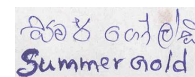 සමර් ගෝල්ඩ්
Summer Gold